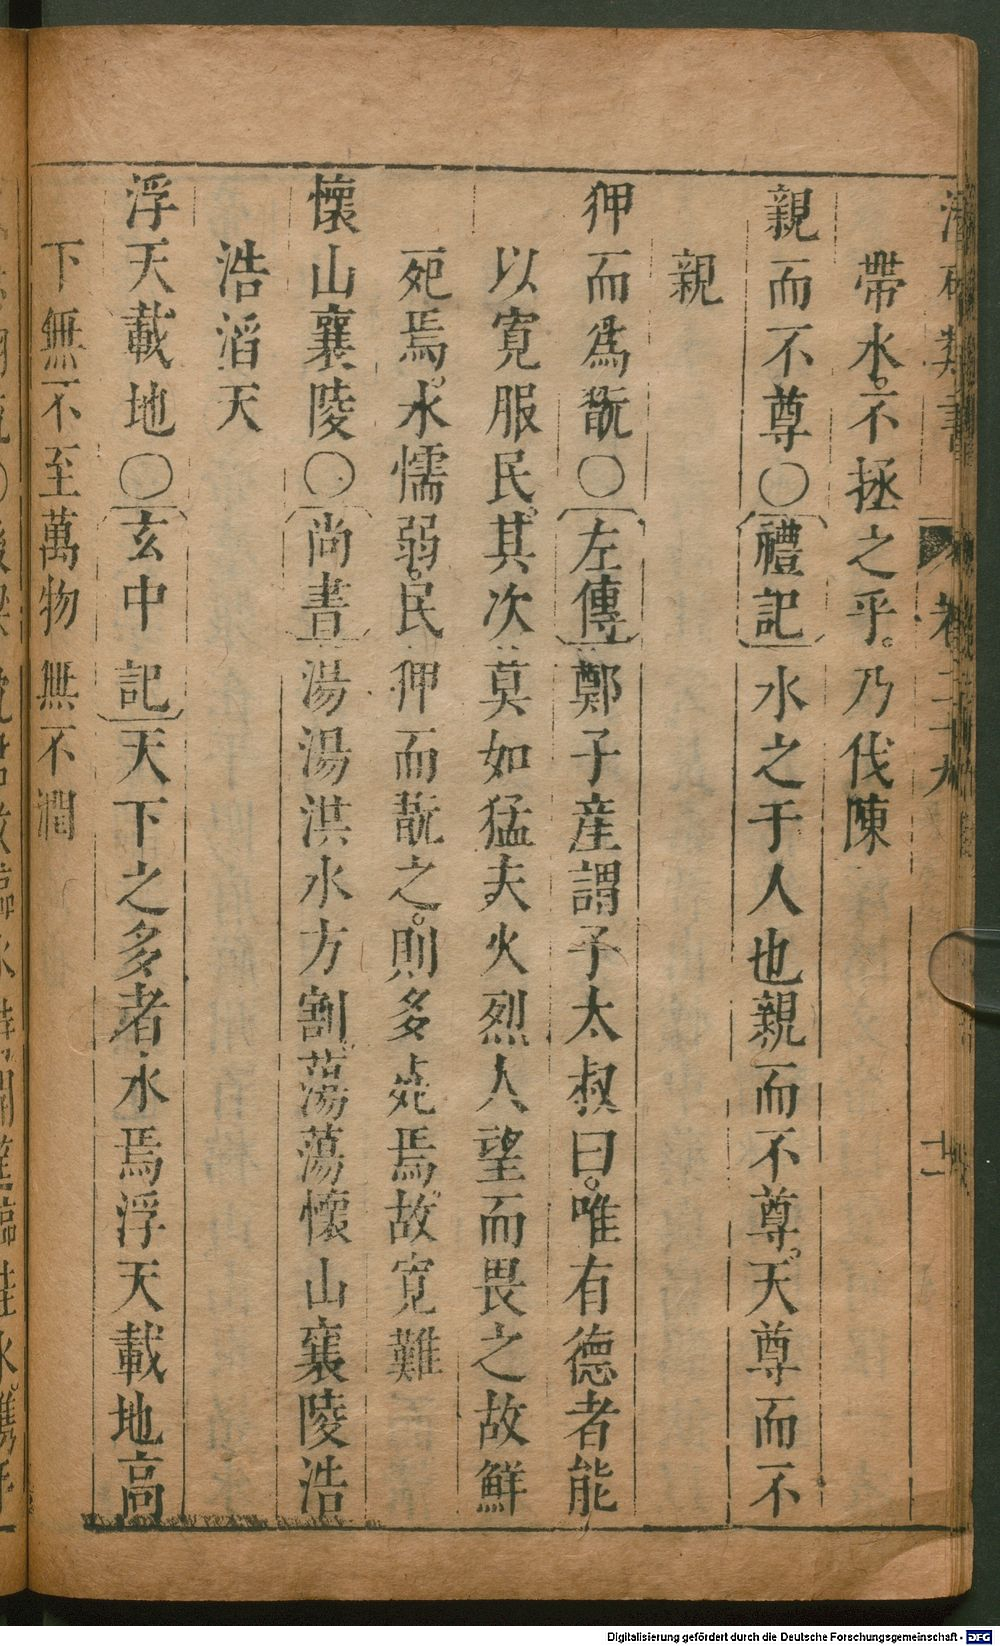 類書 卷二十九
帶水不拯之乎乃伐陳
親而不尊〇禮記水之于人也親而不尊天尊而不
親
狎而爲翫〇左傳鄭子産謂子太叔曰唯有德者能
以寬服民其次莫如猛夫火烈人望而畏之故鮮
死焉水懦弱民狎而翫之則多死焉故寬難
懷山襄陵〇尚書湯湯淇水方割蕩蕩懷山襄陵浩
浩滔天
浮天載地〇玄中記天下之多者水焉浮天載地高
下無不至萬物無不潤
Digitalisierung gefördert durch die Deutsche Forschungsgemeinschaft - DFG